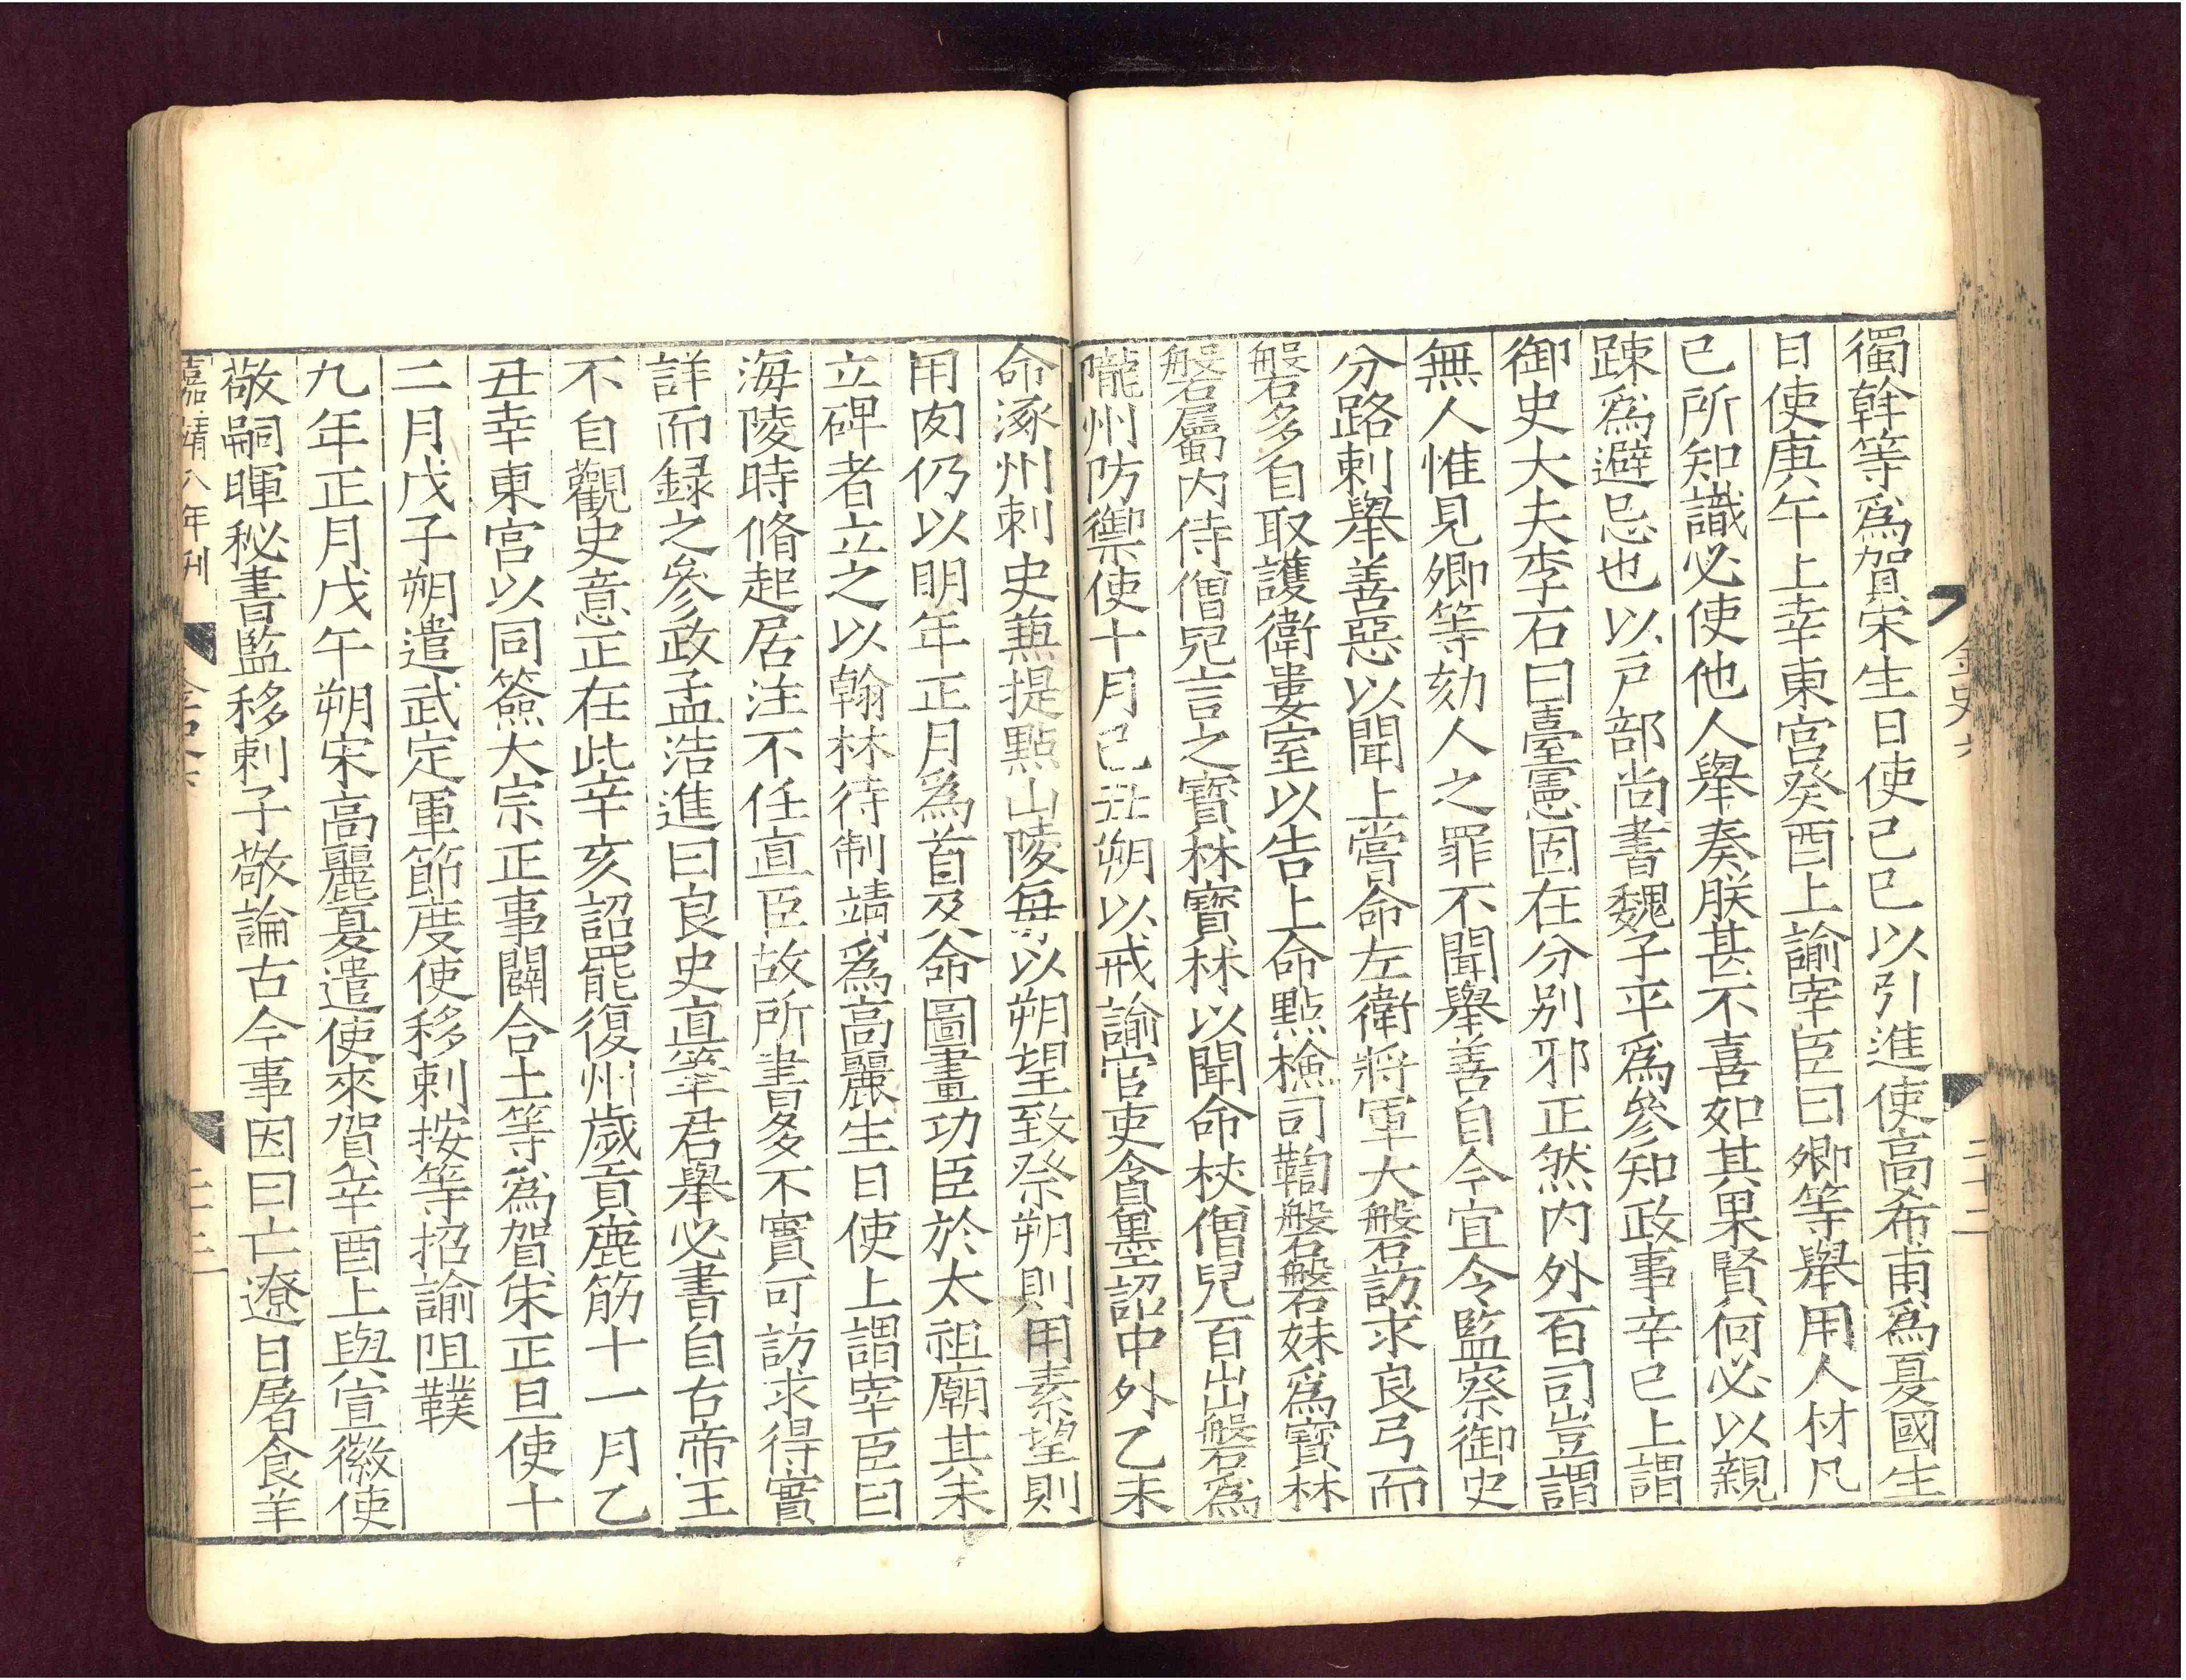 獨幹等爲賀宋生日使己巳以引進使高希甫爲夏國生
日使庚午上幸東宮癸酉上諭宰臣曰卿等舉用人材凡
已所知識必使他人舉奏朕甚不喜如其果賢何必以親
踈爲避忌也以戸部尚書魏子平爲參知政事辛巳上謂
御史大夫李石曰臺憲固在分別邪正然內外百司豈謂
無人惟見卿等劾人之罪不聞舉善自今宜令監察御史
分路刺舉善惡以聞上嘗命左衛將軍大磐訪求良弓而
磐多自取護衛婁室以告上命點檢司鞫磐磐妹爲寳林
磐屬內侍僧兒言之寳林寳林以聞命杖僧兒百出磐爲
隴州防禦使十月己丑朔以戒諭官吏貪墨詔中外乙未
命涿州刺史兼提點山陵每以朔望致祭朔則用素望則
用肉仍以明年正月爲首及命圖畫功臣於太祖廟其未
立碑者立之以翰林待制靖爲高麗生日使上謂宰臣曰
海陵時脩起居注不任直臣故所書多不實可訪求得實
詳而録之參政孟浩進曰良史直筆君舉必書自古帝王
不自觀史意正在此辛亥詔罷復州歲貢鹿筋十一月乙
丑幸東宮以同簽大宗正事闢合土等爲賀宋正旦使十
二月戊子朔遣武定軍節度使移剌按等招諭阻䪁
九年正月戊午朔宋高麗夏遣使來賀辛酉上與宣徽使
敬嗣暉秘書監移剌子敬論古今事因曰亡遼日屠食羊
嘉靖八年刊
金史六
二十二